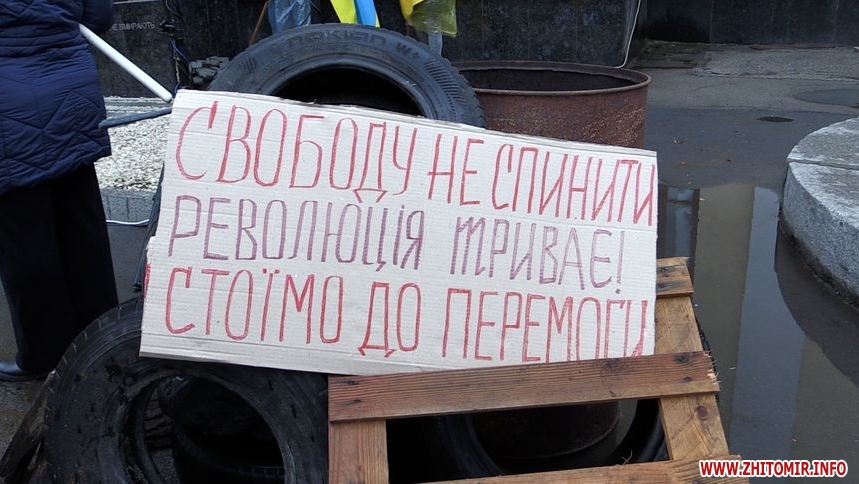 НЕ ВМИРАЮТЬ
СВОБОДУ НЕ СПИНИТИ
РЕВОЛЮЦІЯ ТРИВАЄ!
СТОЇМО ДО ПЕРЕМОГИ
WWW.ZHITOMIR.INFO